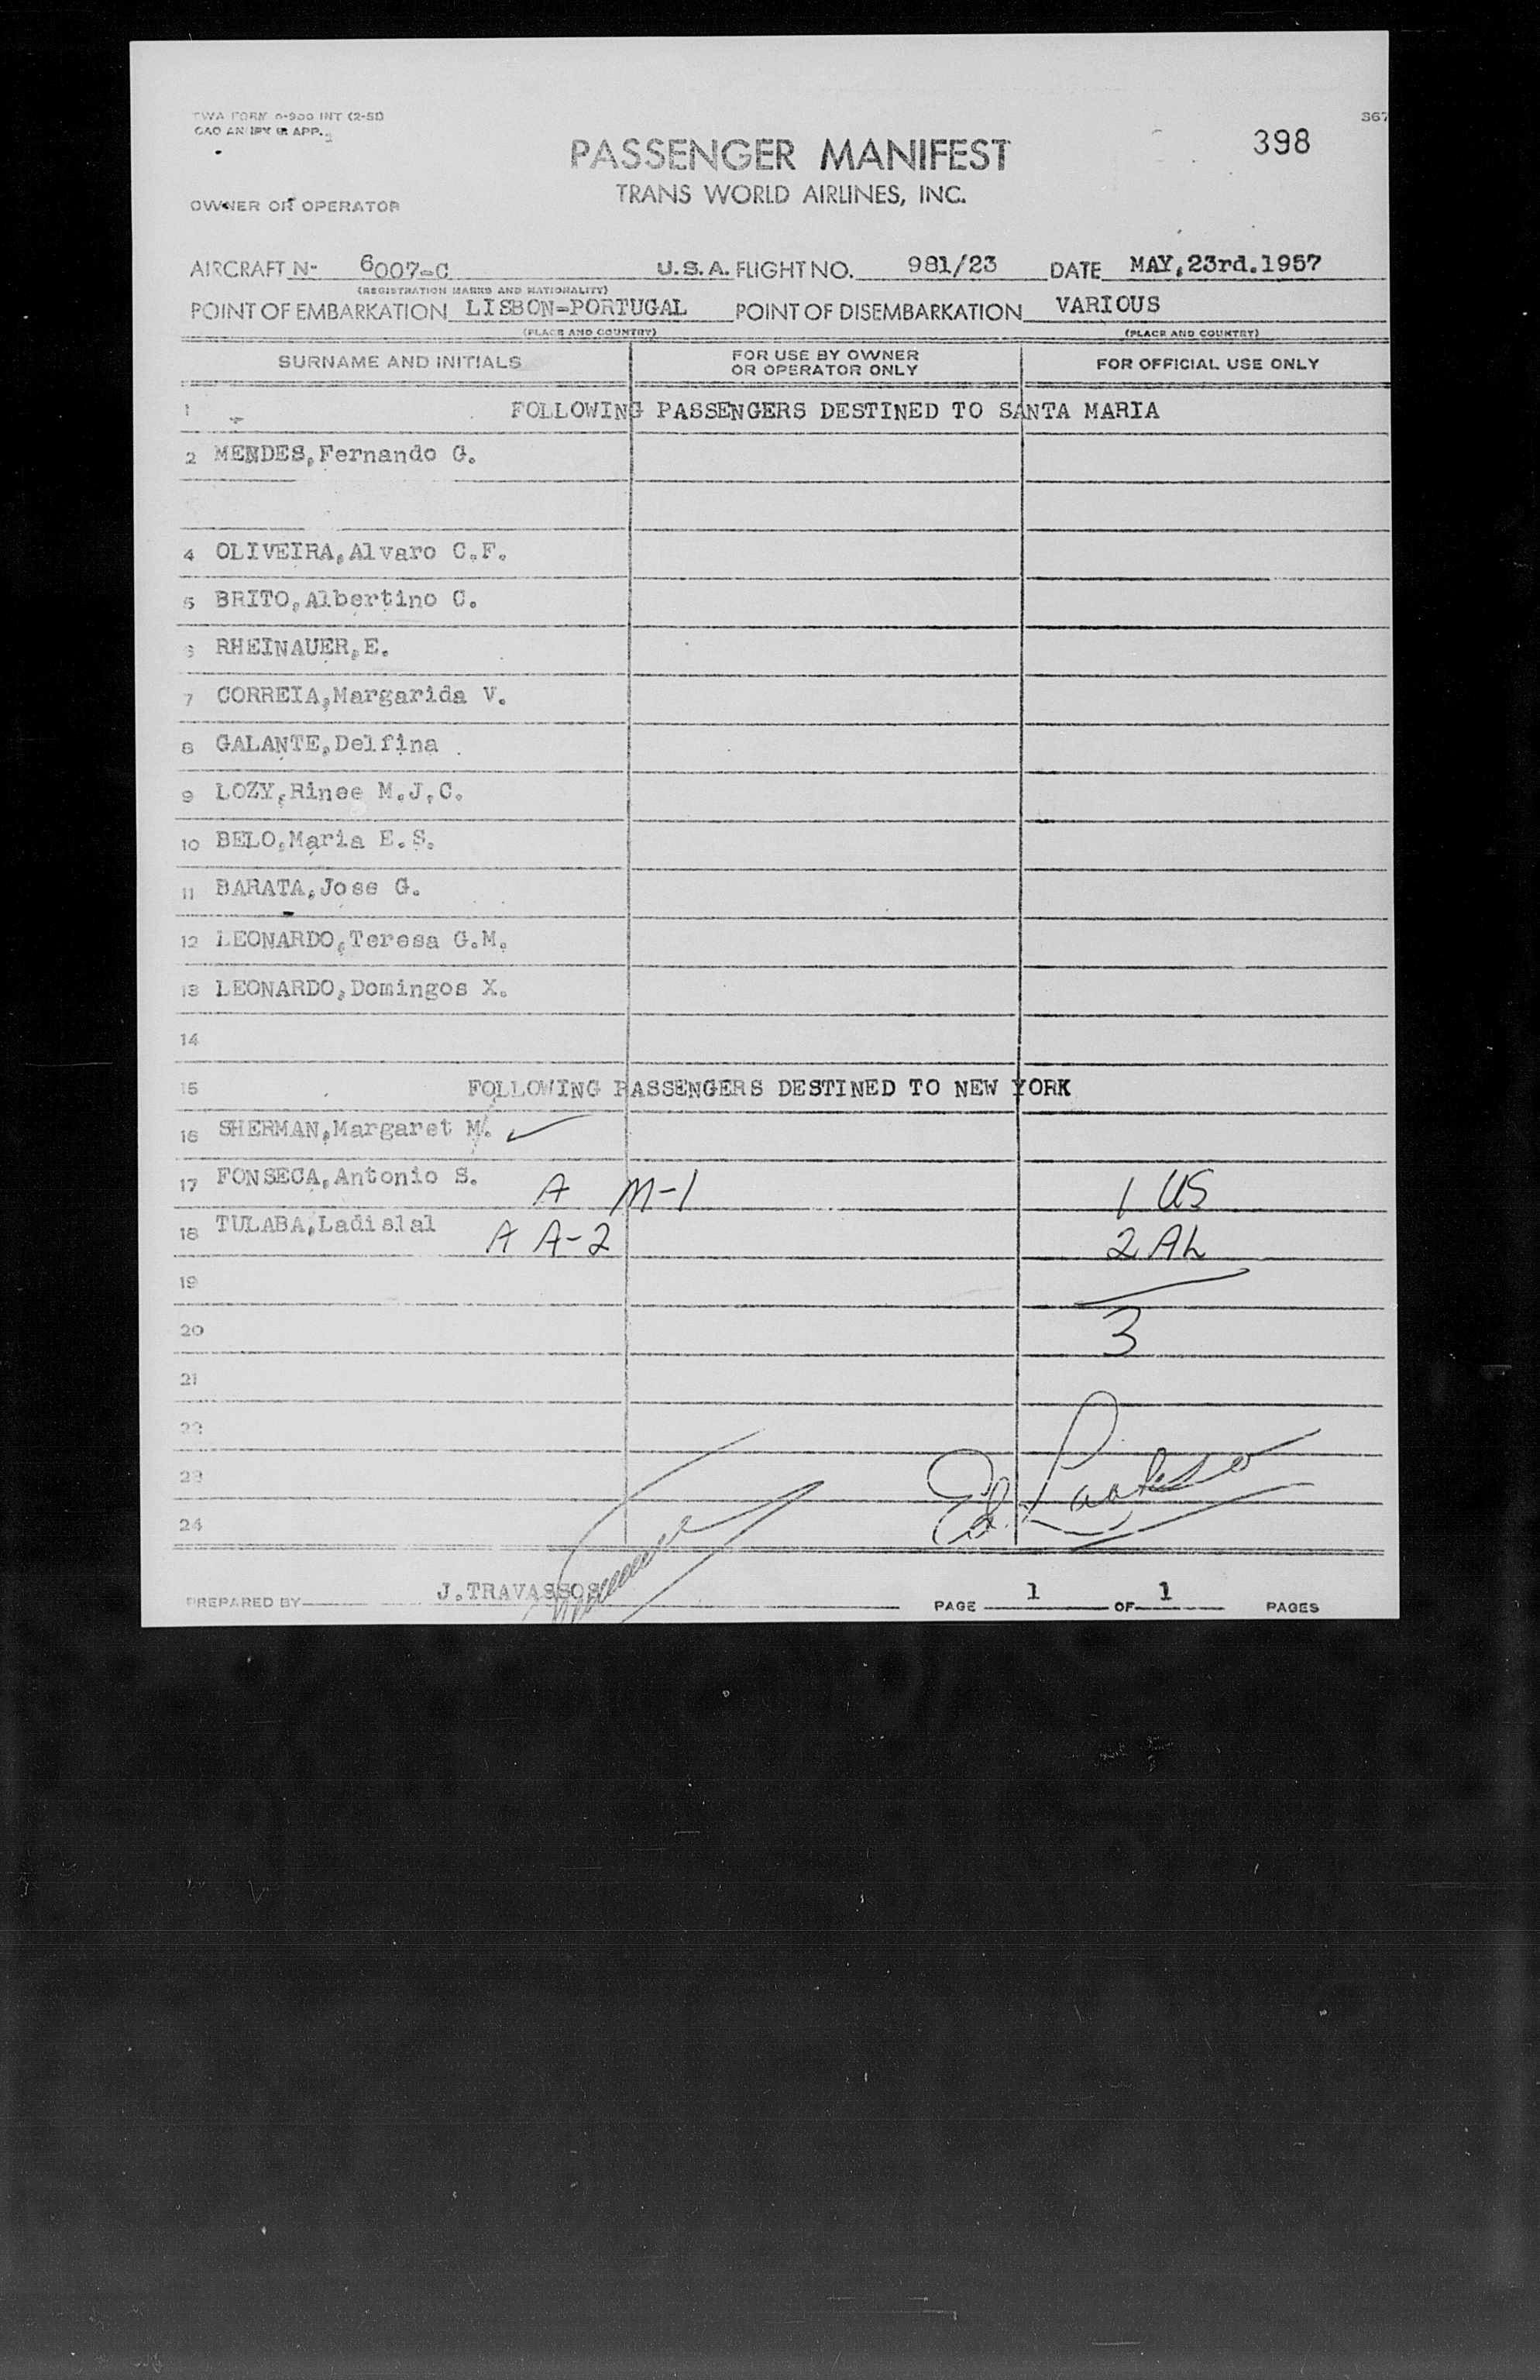 TWA FORM 0-900 INT (2-51)
367
398
PASSENGER MANIFEST
TRANS WORLD AIRLINES, INC.
OWNER OR OPERATOR
AIRCRAFT N- 6007-C U.S.A. FLIGHT NO. 981/23 DATE MAY,23rd.1957
(REGISTRATION MARKS AND NATIONALITY)
POINT OF EMBARKATION LISBON-PORTUGAL POINT OF DISEMBARKATION VARIOUS
(PLACE AND COUNTRY) (PLACE AND COUNTRY)
SURNAME AND INITIALS FOR USE BY OWNER OR OPERATOR ONLY FOR OFFICIAL USE ONLY
1 FOLLOWING PASSENGERS DESTINED TO SANTA MARIA
2 MENDES,Fernando G.
4 OLIVEIRA,Alvaro C.F.
5 BRITO,Albertino C.
6 RHEINAUER,E.
7 CORREIA,Margarida V.
8 GALANTE,Delfina
9 LOZY,Rinee M.J.C.
10 BELO,Maria E.S.
11 BARATA,Jose G.
12 LEONARDO,Teresa G.M.
13 LEONARDO,Domingos X.
14
15 FOLLOWING PASSENGERS DESTINED TO NEW YORK
16 SHERMAN,Margaret M. ✓
17 FONSECA,Antonio S. A M-1 1 US
18 TULABA,Ladislal A A-2 2 AL
19
20 3
21
22
23
24
PREPARED BY J.TRAVASSOS PAGE 1 OF 1 PAGES